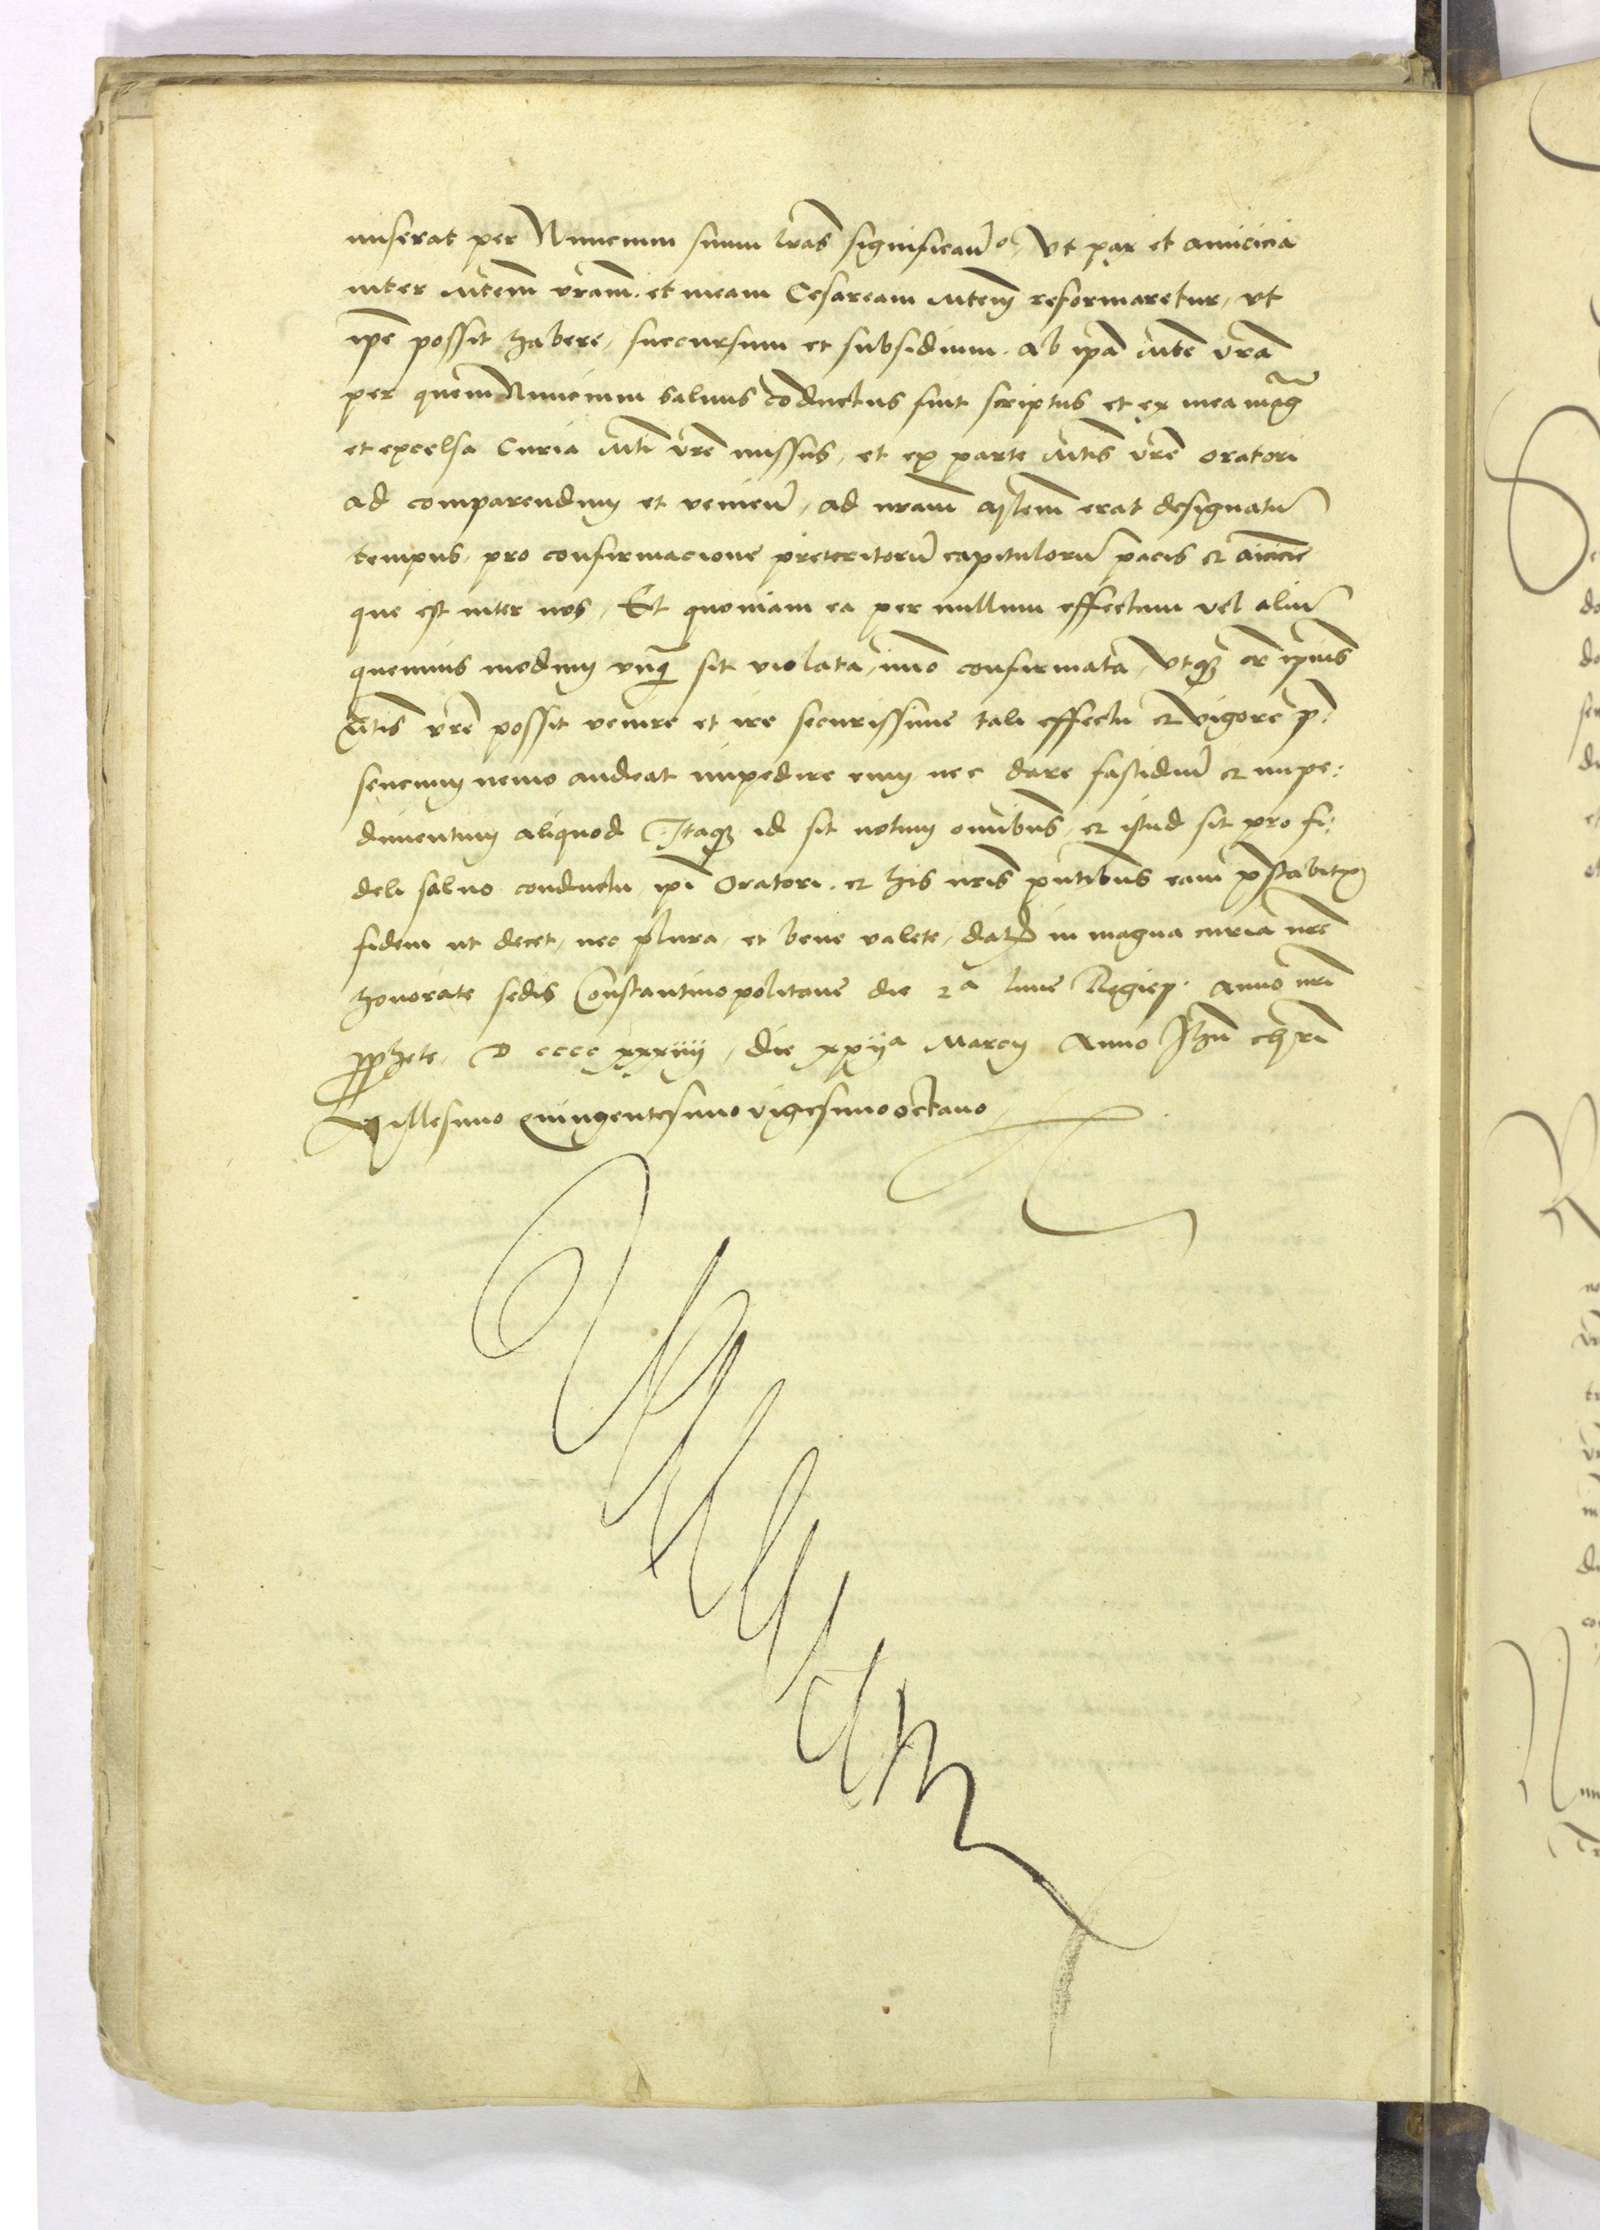 miserat per Nuncium suum l̃ras significan̄o, Vt pax et amicicia
inter Mtem̄ vram̄. et meam Cesaream Mtem̄ reformaretur, vt
ip̄e possit habere, succursum et subsidium. ab ip̄a Mte vr̄a
per quem Nuncium saluus cōductus fuit scriptus et ex mea mag̃
et excelsa Curia Mti vr̄e missus, et ex parte Mtis vr̄e oratori
ad comparendum et veniend̄, ad nram̄ Mtem̄ erat designatū
tempus, pro confirmacione preteritorū capitulorū pacis et aīcicie
que est inter nos, Et quoniam ea per nullum effectum vel aliū
quemuis modum vnq̄ sit violata, imo confirmata, vtq̄ or̄ ipīus
Mtis vr̄e possit venire et ire securissime tali effectu et vigore p̄:
sencium nemo audeat impedire eum nec dare fastidiū et impe:
dimentum aliquod Itaq̄ id sit notum omībus, et istud sit pro fi:
deli saluo conductu ip̄i Oratori. et his nr̄is pn̄tibus eam p̄stabit̄
fidem ut decet, nec plura, et bene valete, dat̄ in magna curia nr̄e
honorate sedis Constantinopolitane die 2a lune Regiep. Anno nr̄i
prophete, D cccc xxxiiij, die xxija Marcij Anno Jhū chr̄i
Millesimo Quingentesimo vigesimo octauo,